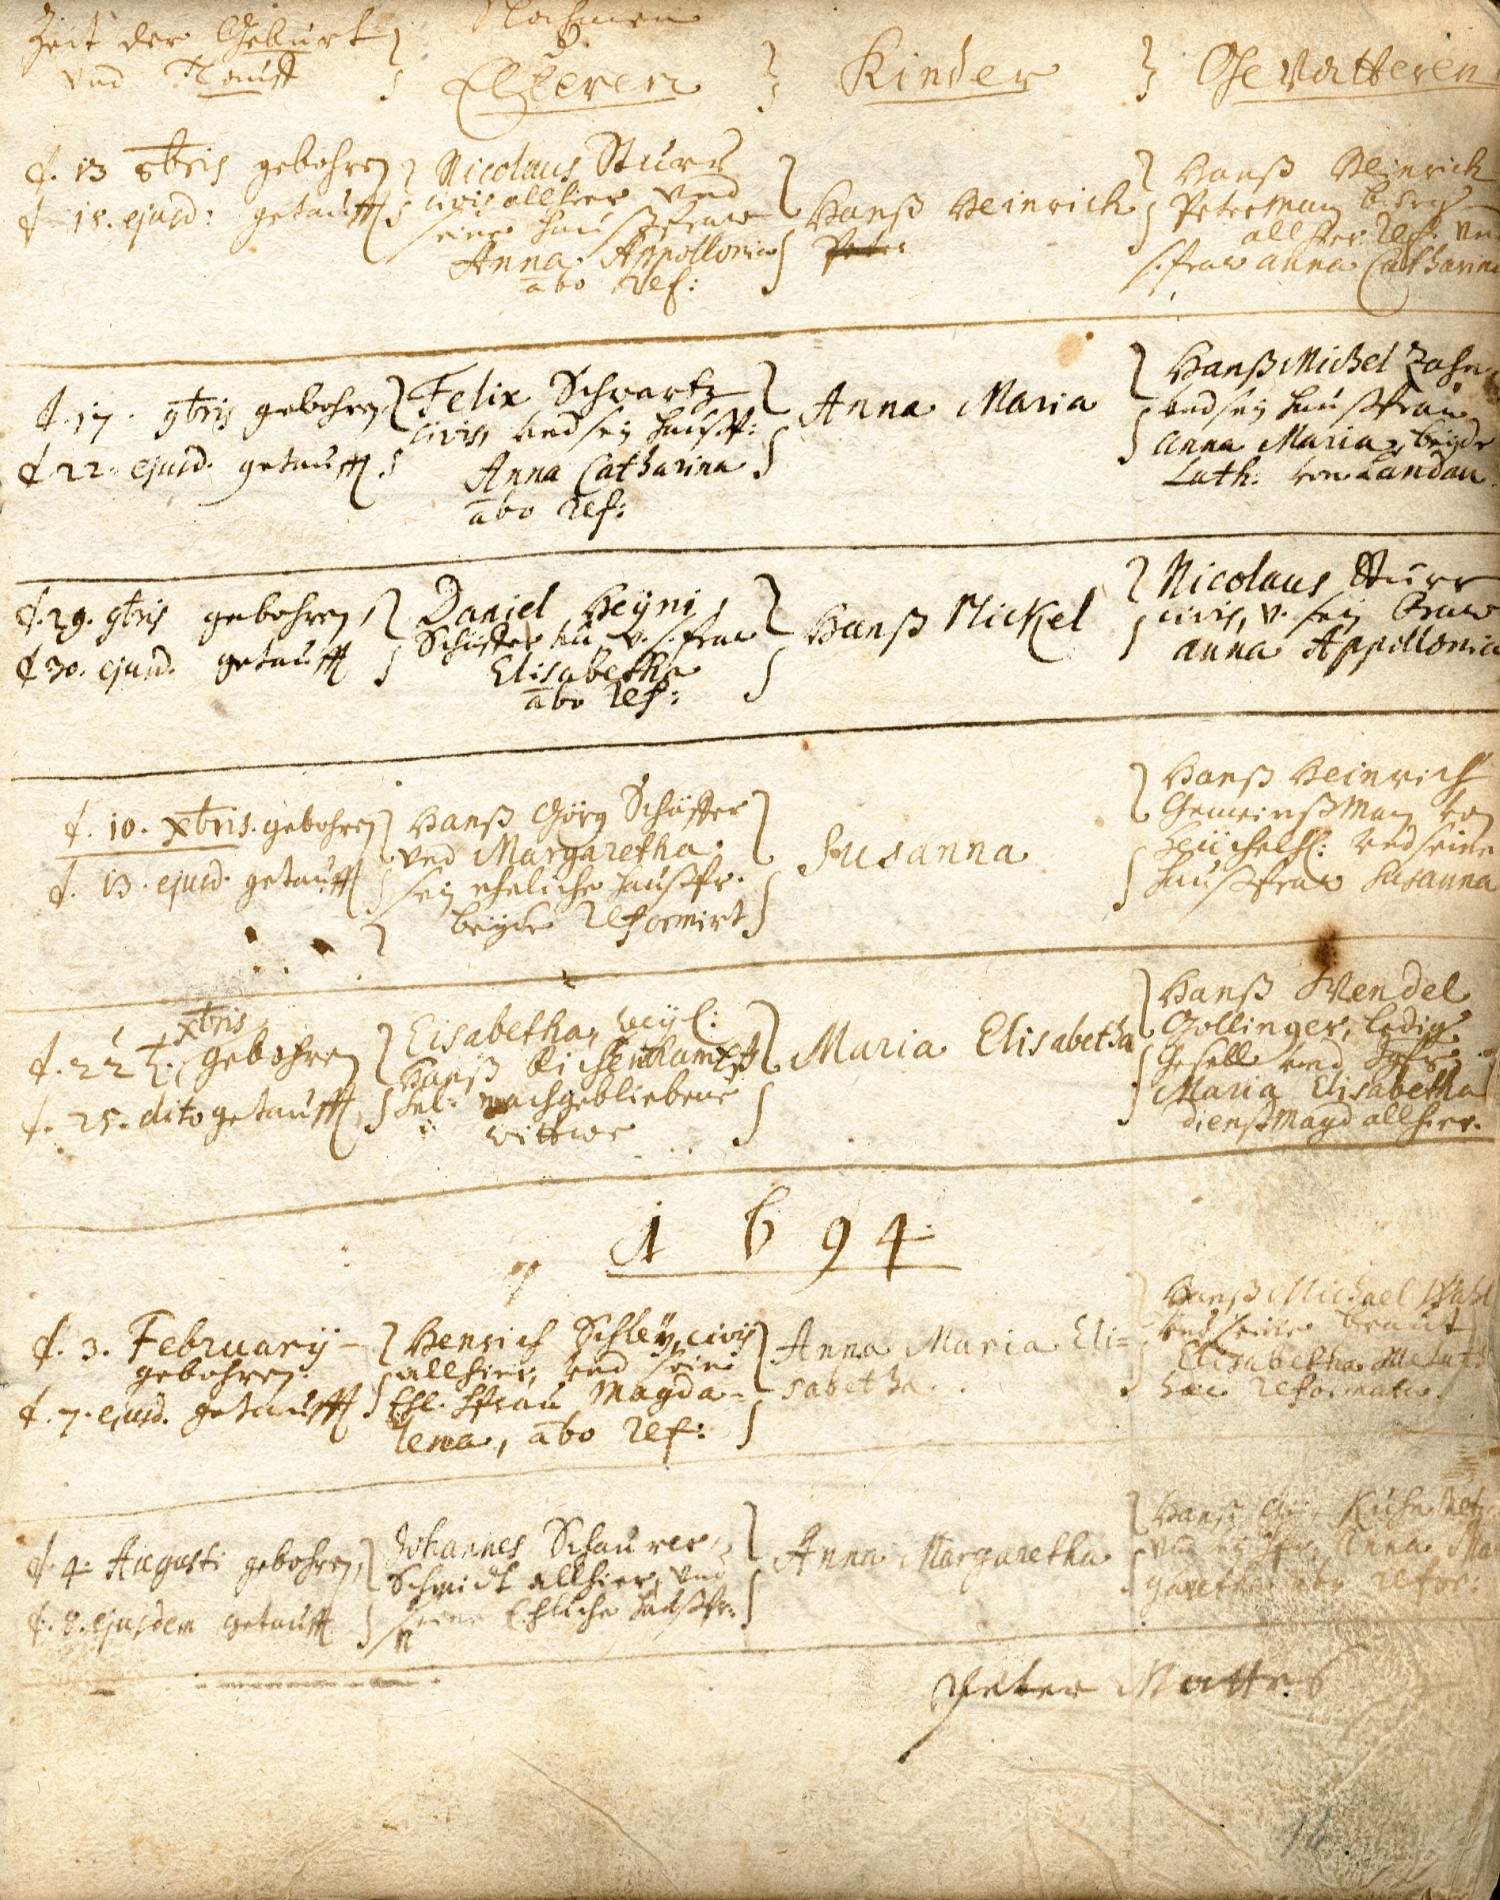 Zeit der Geburt
und Tauff
Nahmen
Elteren
Kinder
Gevatteren
d. 13 8bris gebohren
d. 15. ejusd: getaufft
Nicolaus Sturr
civis allhier und
seine haußfraw
Anna Appollonia
abo ref:
Hanß Heinrich
Peter
Hanß Heinrich
Peterman burger
allhier Ref. und
s. fraw anna Catharina
d. 17. 9bris gebohren
d. 22. ejusd. getaufft
Felix Schwartz
civis, und sein haußf:
Anna Catharina
abo ref:
Anna Maria
Hanß Michel Zahn
und sein haußfraw
anna Maria, beyde
Luth: von Landau.
d. 29. 9bris gebohren,
d. 30. ejusd. getaufft
Daniel Heyni,
v. s. fraw
Elisabetha
abo ref:
Hanß Nickel
Nicolaus Sturr
civis, v. sein fraw
anna Appollonia
d. 10. Xbris. gebohren
d. 13. ejusd. getaufft
Hanß Görg Schäffer
und Margaretha
sein eheliche haußfr.
beyde reformirt
Susanna
Hanß Heinrich
Gemeinßman von
Heüchelh: und seine
haußfraw Susanna
Xbris
d. 22 t. gebohren
d. 25. dito getaufft
Elisabetha, weyl:
Hanß
sel: nachgebliebene
wittwe
Maria Elisabetha
Hanß Wendel
Gollinger, ledig
Gesell und Jgfr:
Maria Elisabetha
dienstmagd allhier.
1694.
d. 3. February
gebohren
d. 7. ejusd. getaufft
Henrich Schley, civis
allhier, und seine
Ehl. hfrau Magda-
lena, abo ref:
Anna Maria Eli=
sabetha.
Hanß Michael Wahl
und seine braut
Elisabetha
haec reformata.
d. 4. Augusti gebohren,
d. 8. ejusdem getaufft
Johannes Schaurer,
Schmidt allhier, und
seine Ehliche haußfr.
Anna Margaretha
Hanß Kuhn ref.
Anna Mar
garetha abo refor:
Peter Mattes
14